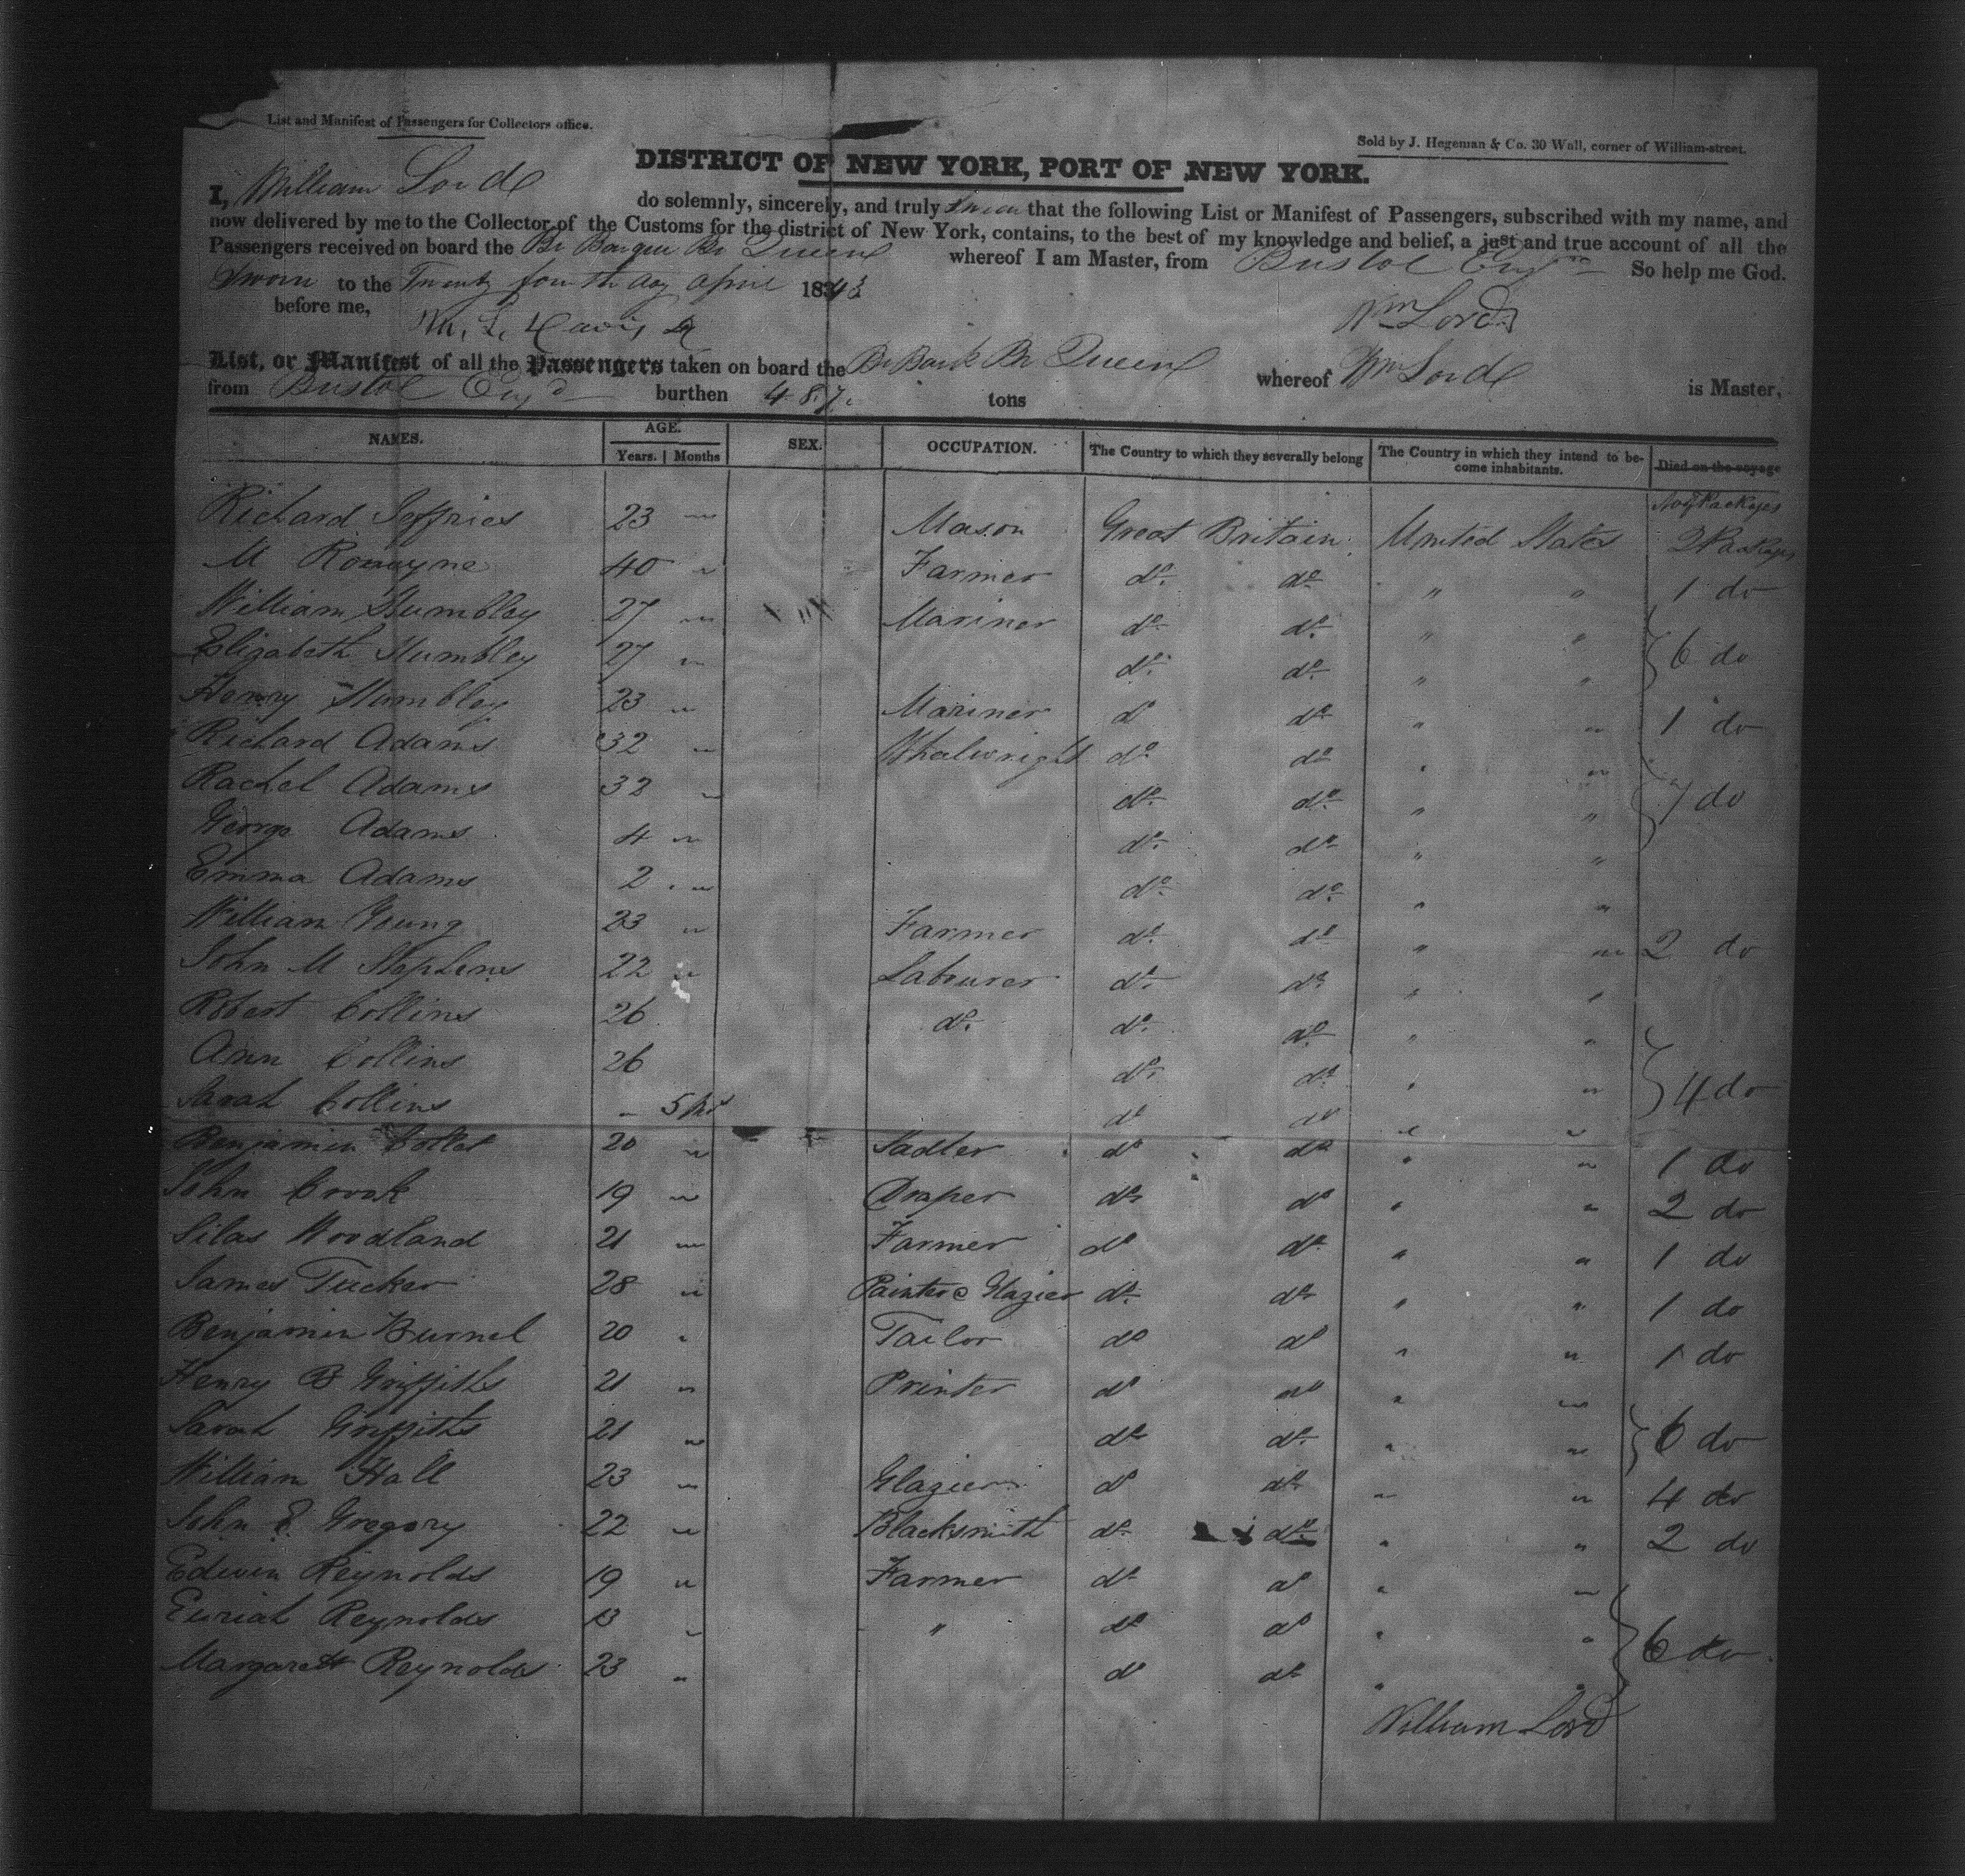 List and Manifest of Passengers for Collectors office.
Sold by J. Hegeman & Co. 30 Wall, corner of William-street.
DISTRICT OF NEW YORK, PORT OF NEW YORK.
I, William Lord do solemnly, sincerely, and truly swear that the following List or Manifest of Passengers, subscribed with my name, and
now delivered by me to the Collector of the Customs for the district of New York, contains, to the best of my knowledge and belief, a just and true account of all the
Passengers received on board the Br Barque Br Queen whereof I am Master, from Bristol Engd So help me God.
Sworn to the Twenty fourth day April 1843
before me, Wm Lord
List, or Manifest of all the Passengers taken on board the Br Bark Br Queen whereof Wm Lord is Master,
from Bristol Engd burthen 487. tons
NAMES. AGE. SEX. OCCUPATION. The Country to which they severally belong The Country in which they intend to be-come inhabitants. Died on the voyage
Years. Months
No of Packages
Richard Jeffries 23 " Mason Great Britain United States 2 Packages
M 40 " Farmer do. do " " 1 do
William Humbley 27 " Mariner do. do. " " 6 do
Elizabeth Humbley 27 " do. do. " "
Henry Humbley 23 " Mariner do do " " 1 do
Richard Adams 32 " Whelwright do do " " 7 do
Rachel Adams 32 " do. do " "
George Adams 4 " do. do " "
Emma Adams 2 " do. do. " "
William Young 23 " Farmer do. do " " 2 do
John M Stephens 22 " Labourer do. do " "
Robert Collins 26 do. do. do " " 4 do
Ann Collins 26 do. do " "
Sarah Collins " 5 do do " "
Benjamin 20 " Sadler do do " " 1 do
John Crook 19 " Draper do do " " 2 do
Silas Woodland 21 " Farmer do do " " 1 do
James Tucker 28 " Painter & Glazier do. do " " 1 do
Benjamin Burnel 20 " Tailor do do " " 1 do
Henry B Griffiths 21 " Printer do do " " 6 do
Sarah Griffiths 21 " do do. " "
William Hall 23 " Glazier do do " " 4 do
John E. Gregory 22 " Blacksmith do. do " " 2 do
Edwin Reynolds 19 " Farmer do do " " 6 do
Euriah Reynolds 13 " " do do " "
Margarett Reynolds 23 " do do " "
William Lord